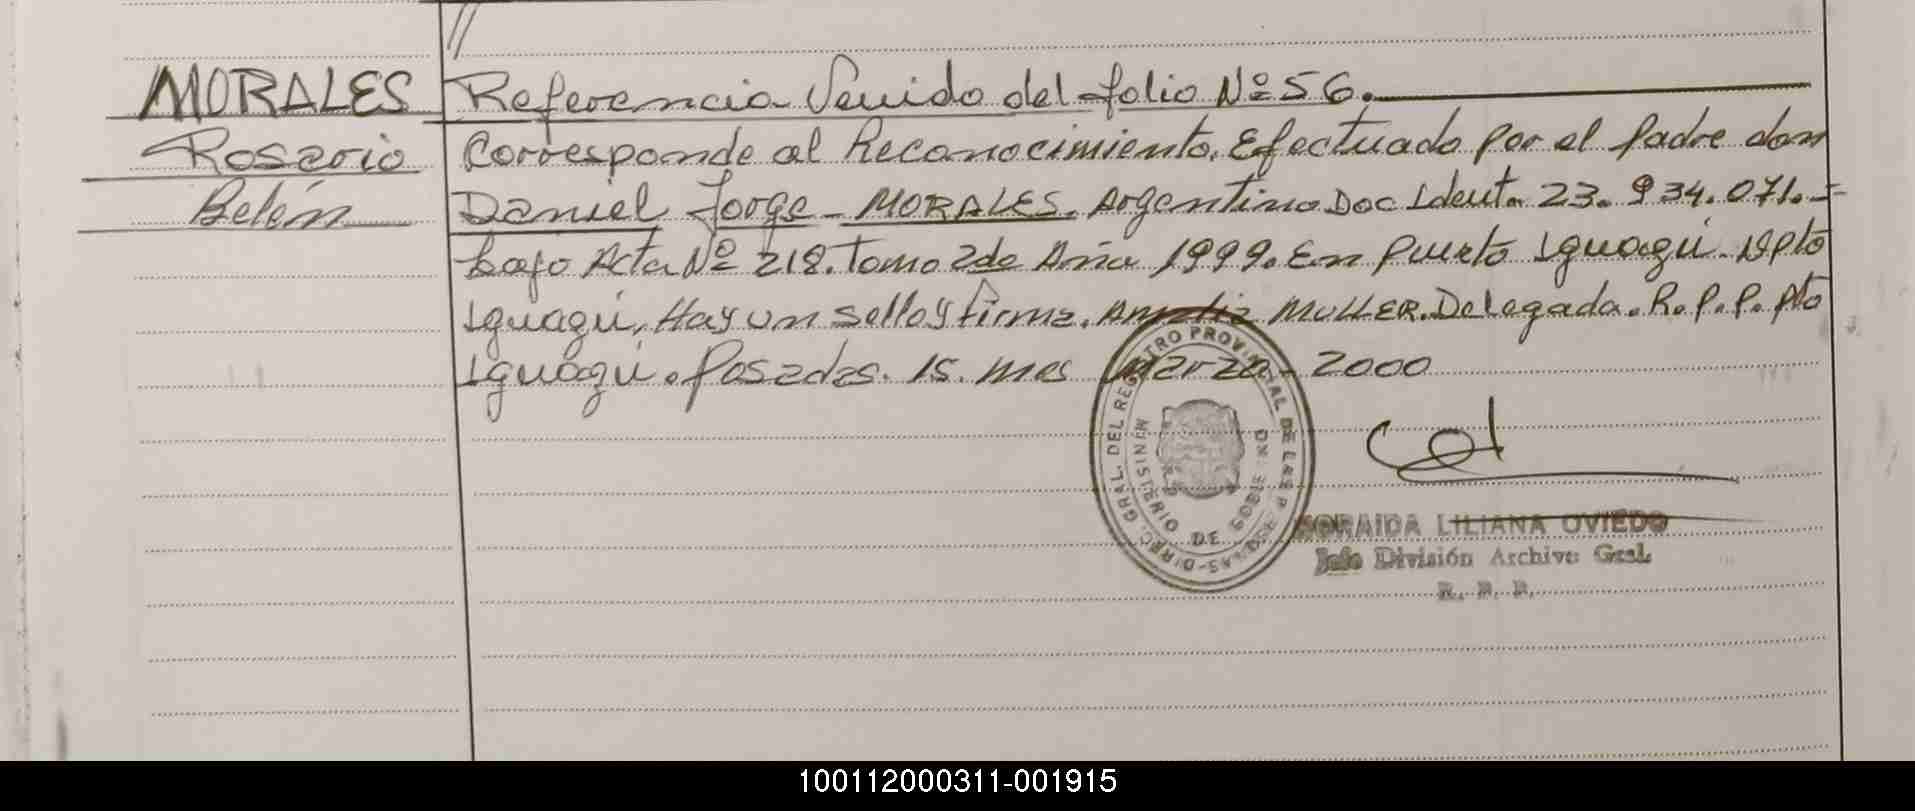 //
MORALES Referencia Venido del folio Nº 56.
Rosario Corresponde al Reconocimiento. Efectuado por el padre don
Belén Daniel Jorge - MORALES. Argentino Doc Ident. 23.934.071. =
bajo Acta Nº 218. Tomo 2do Año 1999. En Puerto Iguazú. Dpto
Iguazú, Hay un sello y firma. Amelia MULLER. Delegada. R.P.P. Pto
Iguazú. Posadas. 15. mes marzo - 2000
DIREC. GRAL. DEL REGISTRO PROVINCIAL DE LAS PERSONAS
MINISTERIO DE GOBIERNO
SORAIDA LILIANA OVIEDO
Jefe División Archivo Gral.
R. P. P.
100112000311-001915